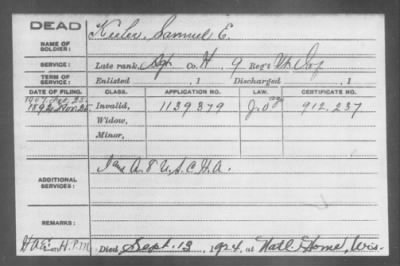 DEAD
NAME OF SOLDIER: Keeler, Samuel E.
SERVICE: Late rank, Sgt Co. H, 9 Reg't Vt. Inf
TERM OF SERVICE: Enlisted , 1 Discharged , 1
DATE OF FILING. CLASS. APPLICATION NO. LAW. CERTIFICATE NO.
1907
1892 Invalid, 1139379 912,237
Widow,
Minor,
ADDITIONAL SERVICES: A & U.S.C.H.A.
REMARKS:
Died Sept. 13, 1924, at Natl Home, Wis.